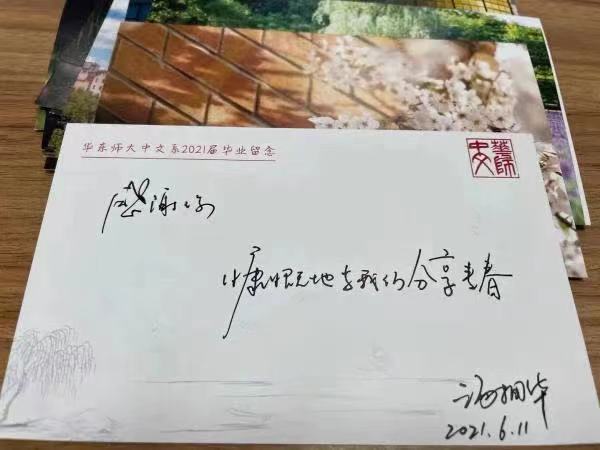 华东师大中文系2021届毕业留念
華師中文
感谢你
慷慨地与我们分享青春
汤拥华
2021.6.11